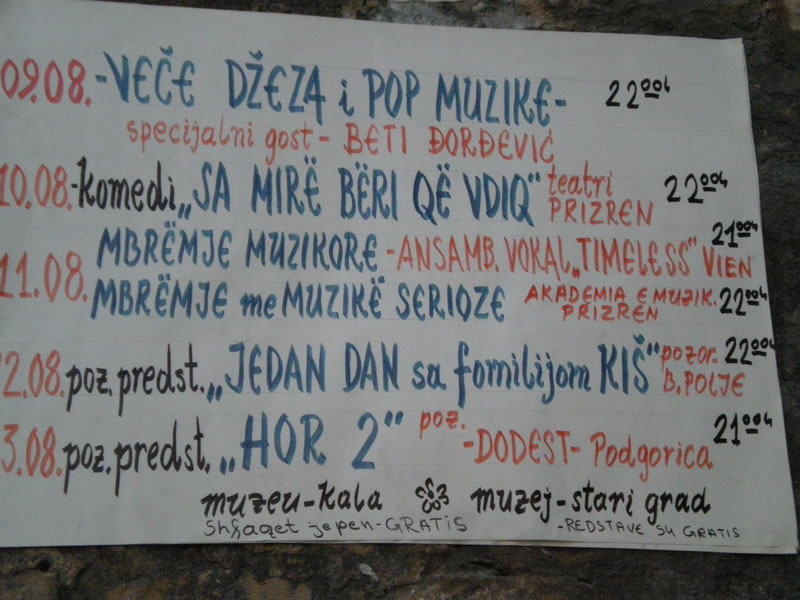 09.08.-VEČE DŽEZA i POP MUZIKE- 22 00h
specijalni gost - BETI ĐORĐEVIĆ
10.08.-komedi „SA MIRË BËRI QË VDIQ" teatri PRIZREN 22 00h
11.08. MBRËMJE MUZIKORE -ANSAMB. VOKAL „TIMELESS" VIEN 21 00h
MBRËMJE me MUZIKË SERIOZE AKADEMIA E MUZIK. PRIZREN 22 00h
2.08. poz. predst. „JEDAN DAN sa fomilijom KIŠ" pozor. B. POLJE 22 00h
3.08. poz. predst. „HOR 2" poz. -DODEST- Podgorica 21 00h
muzeu-kala muzej-stari grad
Shfaqet jepen-GRATIS -REDSTAVE SU GRATIS